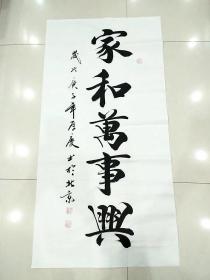 家和萬事興
歲次庚子年 書於北京